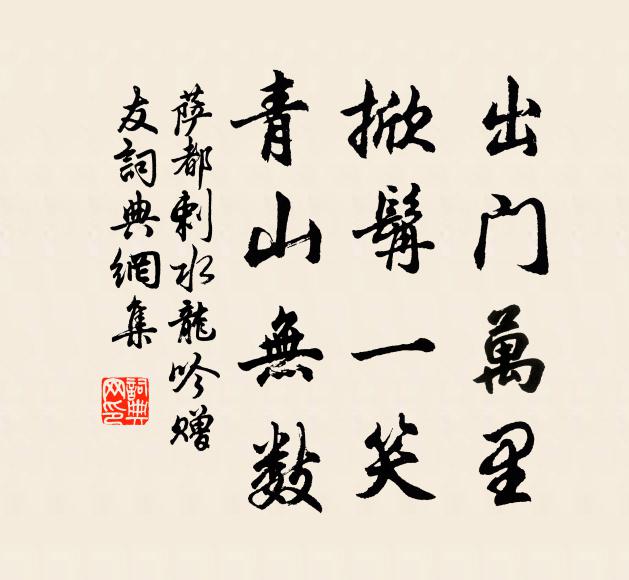 出門萬里
掀髯一笑
青山無數
薩都剌水龍吟贈
友詞典網集
詞典
網印